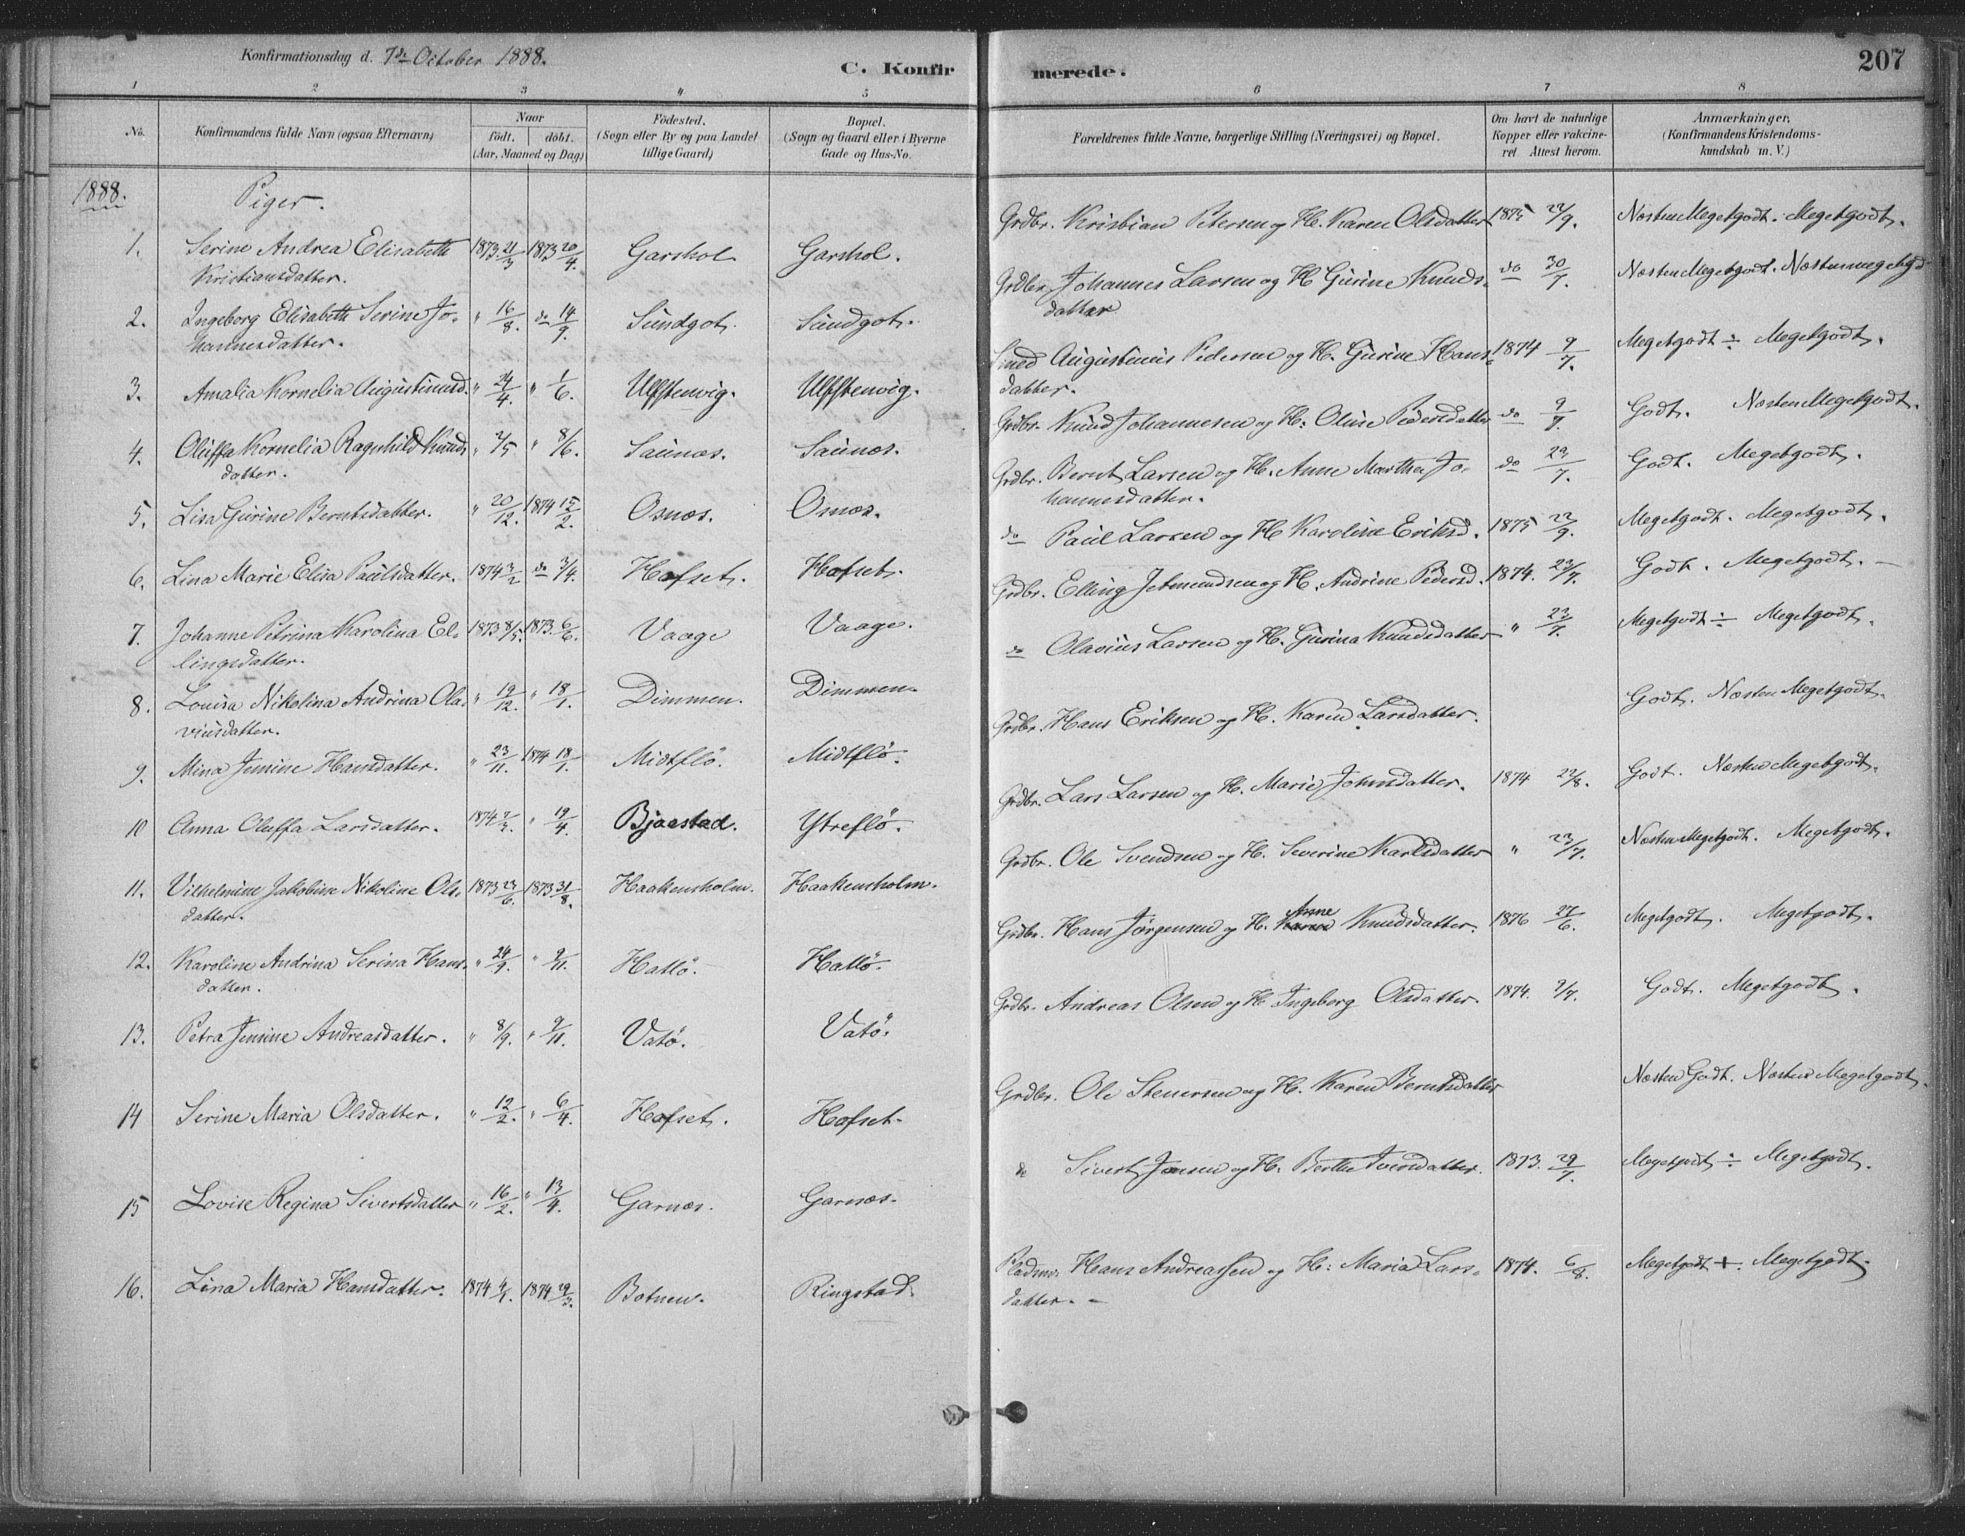 Konfirmationsdag d. 7de October 1888.
C. Konfirmerede.
207
1 2 3 4 5 6 7 8
No.
Konfirmandens fulde Navn (ogsaa Efternavn)
Naar
født. døbt.
(Aar, Maaned og Dag)
Fødested.
(Sogn eller By og paa Landet
tillige Gaard)
Bopæl.
(Sogn og Gaard eller i Byerne
Gade og Hus-No.
Forældrenes fulde Navne, borgerlige Stilling (Næringsvei) og Bopæl.
Om havt de naturlige
Kopper eller vakcine-
ret Attest herom.
Anmærkninger,
(Konfirmandens Kristendoms-
kundskab m. V.)
1888.
Piger.
1. Serine Andrea Elisabeth 1873 21/3 1873 20/4. Garshol Garshol. Grdbr. Kristian Petersen og H. Karen Olsdatter 1875 22/9. Næsten Megetgodt. Megetgodt.
Kristiansdatter.
2. Ingeborg Elisabeth Serine Jo- " 16/8. do 14/9. Sundgot. Sundgot. Grdbr. Johannes Larsen og H Gurine Knuds- do 30/7. Næsten Megetgodt. Næsten meg. godt
hannesdatter. datter
3. Amalia Kornelia Augustinusd. " 24/4. " 1/6. Ulfstenvig. Ulfstenvig. Smed Augustinus Pedersen og H. Gurine Hans- 1874 9/7. Megetgodt ÷ Megetgodt.
datter.
4. Oluffa Kornelia Ragnhild Knuds " 2/5 " 8/6. Saunæs. Saunæs. Grdbr. Knud Johannesen og H. Oluse Pedersdatter do 9/7. Godt. Næsten Megetgodt.
datter.
5. Lisa Gurine Berntsdatter. " 20/12. 1874 15/2. Osnæs. Osnæs. Grdbr. Bernt Larsen og H. Anne Martha Jo- do 23/7. Godt. Megetgodt.
hannesdatter.
6. Lina Marie Elisa Paulsdatter. 1874 3/2 do 3/4. Hofset. Hofset. do Paul Larsen og H Karoline Eriksd. 1875 22/9. Megetgodt. Megetgodt.
7. Johanne Petrina Karolina El- 1873 8/5. 1873. 6/6. Vaage Vaage. Grdbr. Elling Jetmundsen og H. Andrine Pedersd. 1874. 23/7. Godt. Megetgodt. —
lingsdatter.
8. Louisa Nikolina Andrina Ola- " 19/12. " 18/1. Dimmen. Dimmen. do Olavius Larsen og H. Gurina Knudsdatter " 23/7. Megetgodt ÷ Megetgodt.
viusdatter.
9. Mina Jensine Hansdatter. " 23/11. 1874 18/1. Midtflö. Midtflö. Grdbr. Hans Eriksen og H. Karen Larsdatter. Godt. Næsten Megetgodt.
10 Anna Oluffa Larsdatter. 1874 2/3. " 19/4. Bjaastad. Ytreflö. Grdbr. Lars Larsen og H. Marie Johnsdatter. 1874 22/8. Godt. Næsten Megetgodt.
11. Vilhelmine Jakobine Nikoline Ols- 1873 23/6. 1873 31/8. Haakensholm. Haakensholm. Grdbr. Ole Svendsen og H. Severine Karlsdatter " 23/7. Næsten Megetgodt. Megetgodt.
datter.
12. Karoline Andrina Serina Hans- " 24/9. " 9/11. Hatlö. Hatlö. Grdbr. Hans Jörgensen og H. Anne Knudsdatter. 1876 27/6. Megetgodt. Megetgodt.
datter.
13. Petra Jensine Andreasdatter. " 8/9. " 9/11. Vatö. Vatö. Grdbr. Andreas Olsen og H. Ingeborg Olsdatter. 1874. 9/7. Godt. Megetgodt.
14 Serine Maria Olsdatter. " 12/2. " 6/4. Hofset. Hofset. Grdbr. Ole Stenersen og H. Karen Berntsdatter Næsten Godt. Næsten Megetgodt.
15 Lovise Regina Sivertsdatter " 16/2. " 13/4. Garnæs. Garnæs. do Sivert Jensen og H. Berthe Iversdatter. 1873. 29/7. Megetgodt ÷ Megetgodt.
16. Lina Maria Hansdatter. 1874 1874 29/3. Botnen. Ringstad. Pladsm. Hans Andreassen og H. Maria Lars- 1874. 6/8. Megetgodt +. Megetgodt.
datter. –